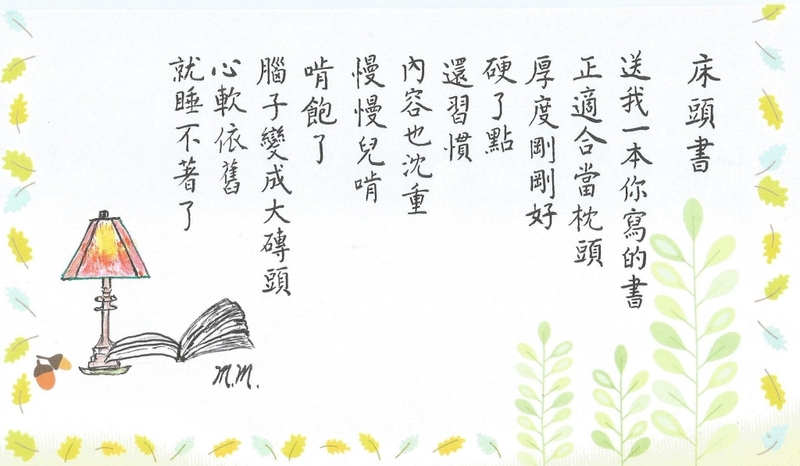 床頭書
送我一本你寫的書
正適合當枕頭
厚度剛剛好
硬了點
還習慣
內容也沈重
慢慢兒啃
啃飽了
腦子變成大磚頭
心軟依舊
就睡不著了
M.M.